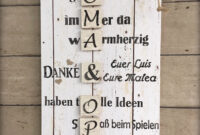 O
imMer da
wArmherzig
DANKE & Euer Luis
Eure Malea
haben tOlle Ideen
SPaß beim Spielen